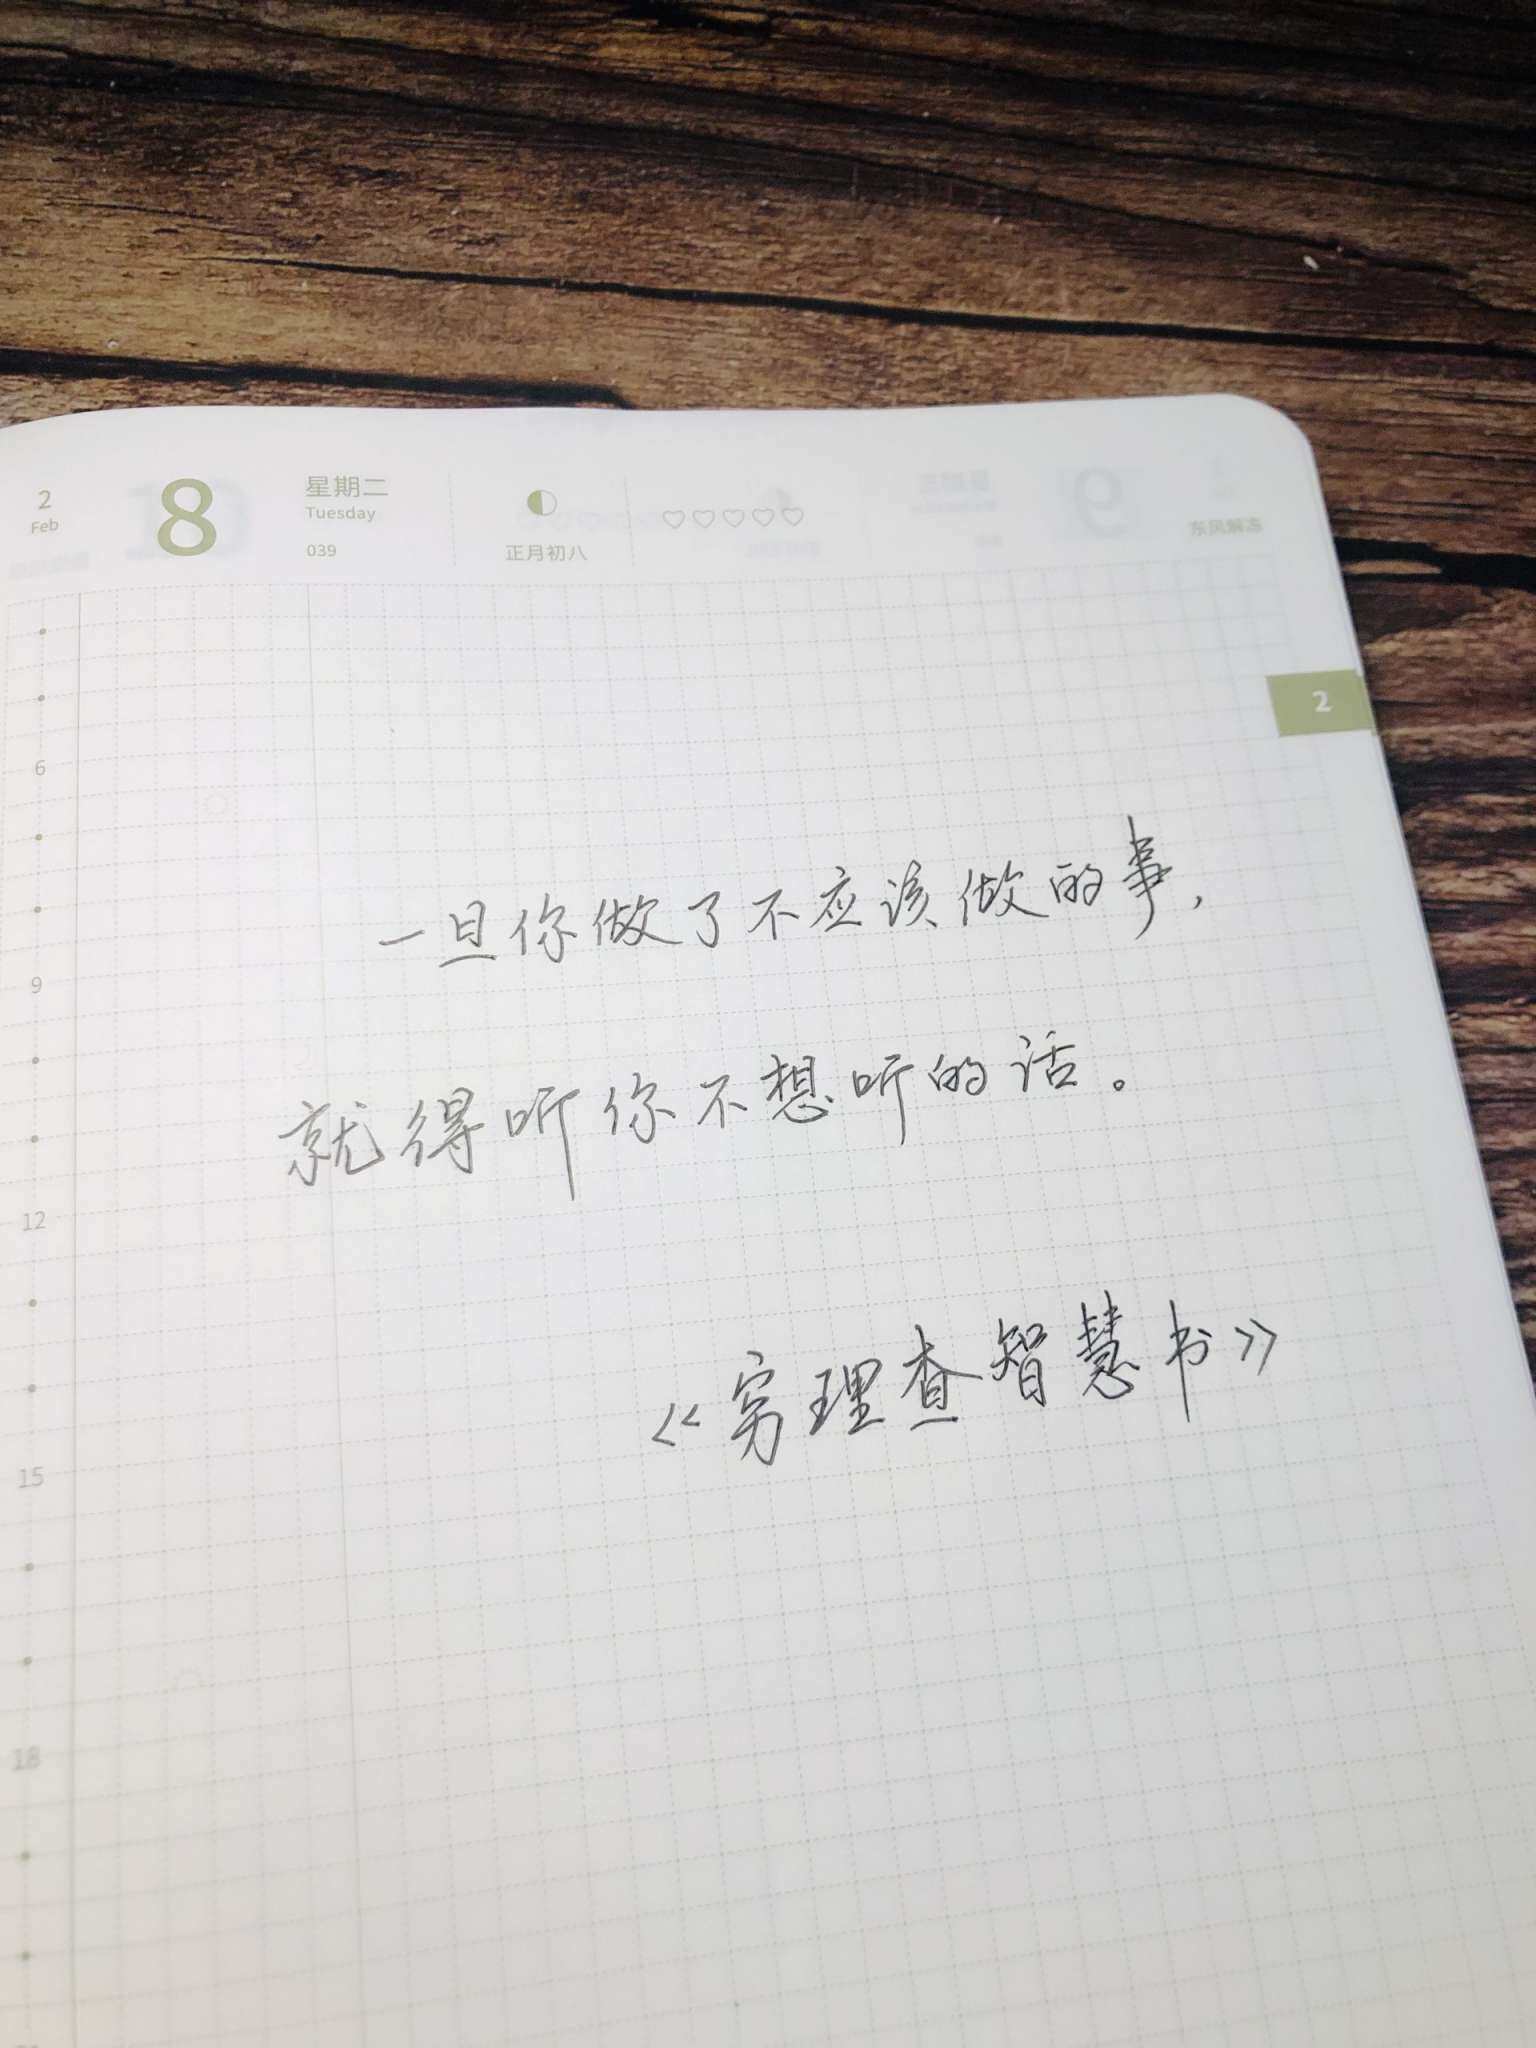 2
Feb
8
星期二
Tuesday
039
正月初八
东风解冻
2
6
9
12
15
18
一旦你做了不应该做的事，
就得听你不想听的话。
《穷理查智慧书》